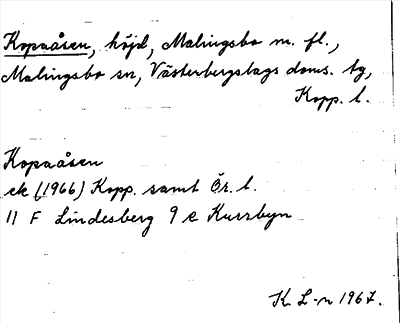 Kopaåsen, höjd, Malingsbo m. fl.,
Malingsbo sn, Västerbergslags doms. tg,
Kopp. l.
Kopaåsen
ek (1966) Kopp. samt Ör. l.
11 F Lindesberg 9 e Kurrbyn
K. L-n 1967.